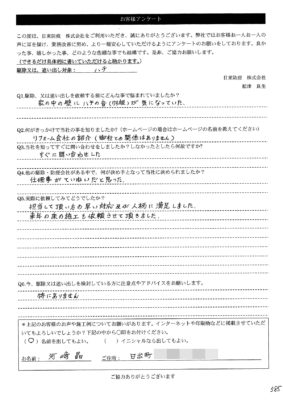 お客様アンケート
この度は、日東防疫 株式会社をご利用いただき、誠にありがとうございます。弊社ではお客様お一人お一人の
声に耳を傾け、業務改善に努め、より一層安心していただけるようにアンケートのお願いをしております。良かっ
た事、嬉しかった事、どのような些細な事でも結構です。是非、ご協力ください。
(できるだけ具体的に書いていただけると助かります。)
駆除又は、追い出し対象: ハチ
日東防疫 株式会社
Q1.駆除、又は追い出しを依頼する前にどんな事で悩まれていましたか?
家の中の壁にハチの音(羽根)が気になっていました。
Q2.何がきっかけで当社の事を知りましたか?(ホームページの場合はホームページの名前を教えてください)
リフォーム会社の紹介(御社との関係はありません)
Q3.当社を知ってすぐに問い合わせをしましたか?しなかったとしたら何故ですか?
すぐに問い合わせました
Q4.他の駆除・防疫会社がある中で、何が決め手となって当社に決められましたか?
仕事がていねいだと思った。
Q5.実際に依頼してみてどうでしたか?
担当して頂いた方の早い対応及び人柄に満足しました。
来年の床の施工も依頼させて頂きました。
Q6.今、駆除又は追い出しを検討している方に注意点やアドバイスをお願いします。
特にありません
*上記のお客様のお声や施工例についてお願いがあります。インターネットや印刷物などに掲載させていただ
いてもよろしいでしょうか?下記の中から○印をお付けください。
(○)名前を出してもよい。 ( )イニシャルなら出してもよい。
お名前: ご住所: 日出町
ご協力ありがとうございます
585